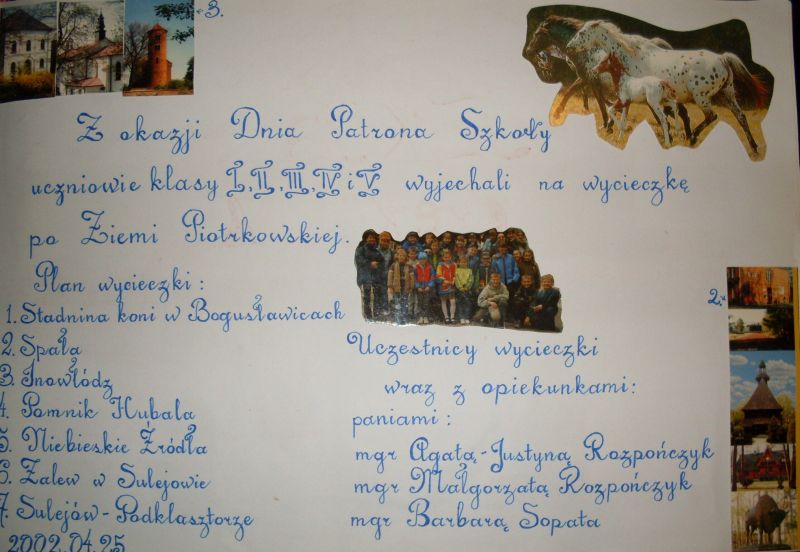 3.
Z okazji Dnia Patrona Szkoły
uczniowie klasy I, II, III, IV i V wyjechali na wycieczkę
po Ziemi Piotrkowskiej.
Plan wycieczki:
1. Stadnina koni w Bogusławicach
2. Spała
3. Inowłódz
4. Pomnik Hubala
5. Niebieskie Źródła
6. Zalew w Sulejowie
7. Sulejów-Podklasztorze
2002.04.25
2.
Uczestnicy wycieczki
wraz z opiekunkami:
paniami:
mgr Agatą-Justyną Rozpończyk
mgr Małgorzatą Rozpończyk
mgr Barbarą Sopata